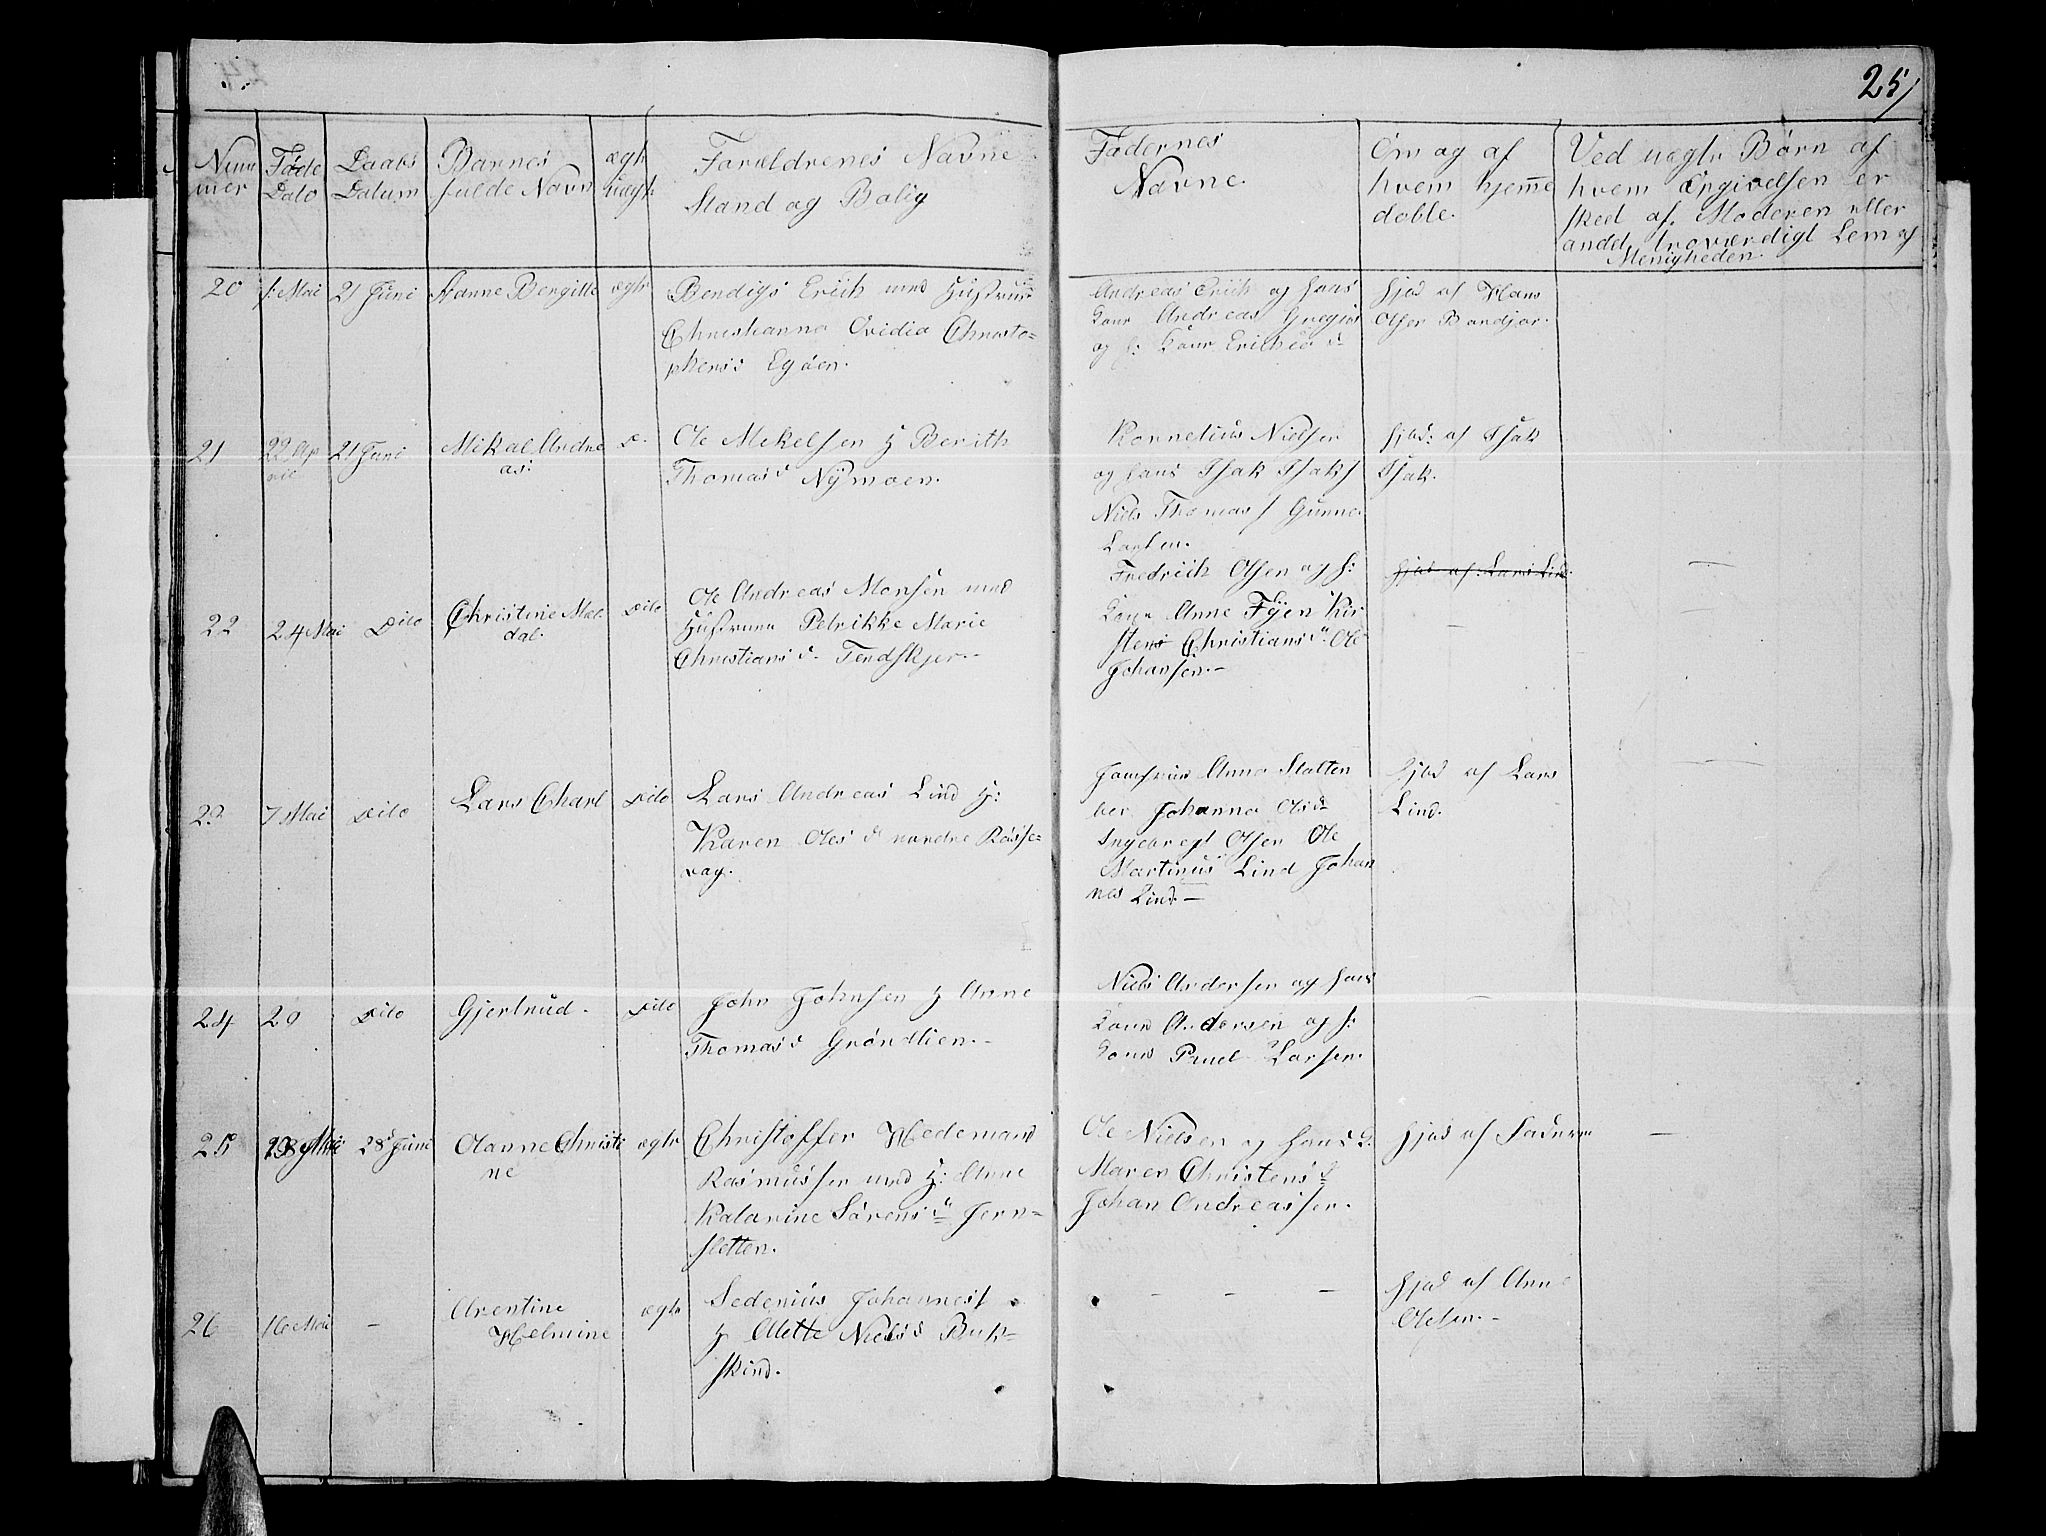 25
Num
mer
Føde
Dato
Daabs
Datum
Barnes
fulde Navn
ægte
uægte
Forældrenes Navne
Stand og Bolig
Fadernes
Navne.
Om og af
hvem hjemme
døbte.
Ved uægte Børn af
hvem Opgivelsen er
skeet af Moderen eller
andet troværdigt Lem af
Menigheden.
20
1 Mai
21 Juni
Hanne Bergitte
ægte
Bendigs Erich med Hustrue
Christianna Ovidia Christo-
phersd Egøen.
Andreas Erich og hans
Kone Andreas Gregers
og h: Kone
hjed af Hans
Olsen
21
22 Ap
ril
21 Juni
Mikal Andre
as:
D.
Ole Mekelsen H Berith
Thomasd Nÿmoen.
Kornelius Nielsen
og hans Isak Isaks
Niels Thomas
hjed: af Isak
Isak.
22
24 Mai
Dito
Christine Mal
dal.
Dito
Ole Andreas Monsen med
Hustruen Petrikke Marie
Christians d. Tendskjer.-
Fredrich Olsen og h:
Kone Anne Fÿen Kir
stens Christiansd. Ole
Johansen.-
hjed af: Lars Lind.
23
7 Mai
Dito
Lars Charl
Dito
Lars Andreas Lind H:
Karen Oles d nordre Røsse-
vog.
Jomfrue Anna Slatten
ber Johanna Olsd
Ingebregt Olsen Ole
Martinus Lind Johan
nes Lind.-
hjed af Lars
Lind.
24
20
Dito
Gjertrud.
Dito
John Johnsen H Anne
Thomasd Grøndlien.-
Niels Andersen og hans
Kone Andersen og h:
Kone Pauel Larsen.
25
Mai
28 Juni
Olanne Christi
ne
ægte
Christoffer Hedemand
Rasmussen med H: Anne
Katarine Sørensd Jern-
sletten.
Ole Nielsen og hans K:
Maren Christensd
Johan Andreassen.
hjed af Faderen
26
16 Mai
-
Arentine
Helmine
ægte
Sedenius Johannes
H Olette Nielsd Buk-
skind.
- - -
hjed af Anne
Olsen.-